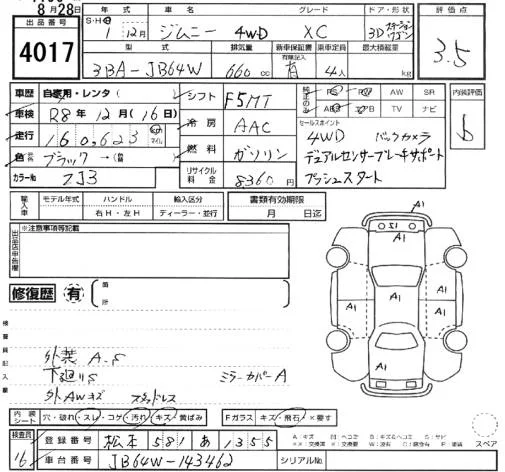 8月28日
出品番号
4017
年式 車名 グレード ドア・形状
S・H・R 1年 12月 ジムニー 4WD XC 3D ステーションワゴン
型式 排気量 新車保証書 乗車定員 最大積載量
3BA-JB64W 660cc 有 4人 kg
評価点
3.5
車歴 自家用・レンタ
車検 R8年12月(16日)
走行 160,623 km マイル
色 ブラック→(
カラーNo ZJ3
シフト F5MT
冷房 AAC
燃料 ガソリン
リサイクル料金 8360円
PS PW AW SR
ABS エアB TV ナビ
セールスポイント
4WD バックカメラ
デュアルセンサーブレーキサポート
プッシュスタート
内装評価
b
輸入車 モデル年式 ハンドル 輸入区分
年 右H・左H ディーラー・並行
書類有効期限
月 日迄
出品店申告欄
※注意事項等記載
修復歴 有 箇所
検査員記入欄
外装 A-S
下廻りS
外AWキズ スタッドレス
ミラーカバーA
A1
S1
A1
A1
A1
A1
A1
内装シート 穴・破れ スレ・コゲ・汚れ・キズ・黄ばみ
Fガラス キズ・飛石・×要す
検査員
16
登録番号 松本 581 あ 1355
車台番号 JB64W-143462
シリアルNo
スペア